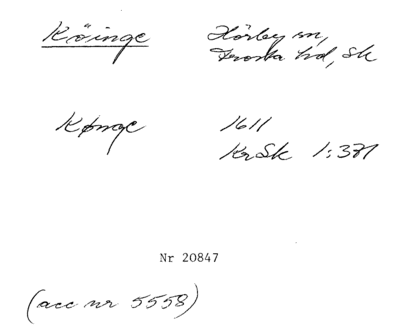 Köinge
Hörby sn,
Frosta hd, Sk
Kønge
1611
KrSk 1:381
Nr 20847
(acc nr 5558)